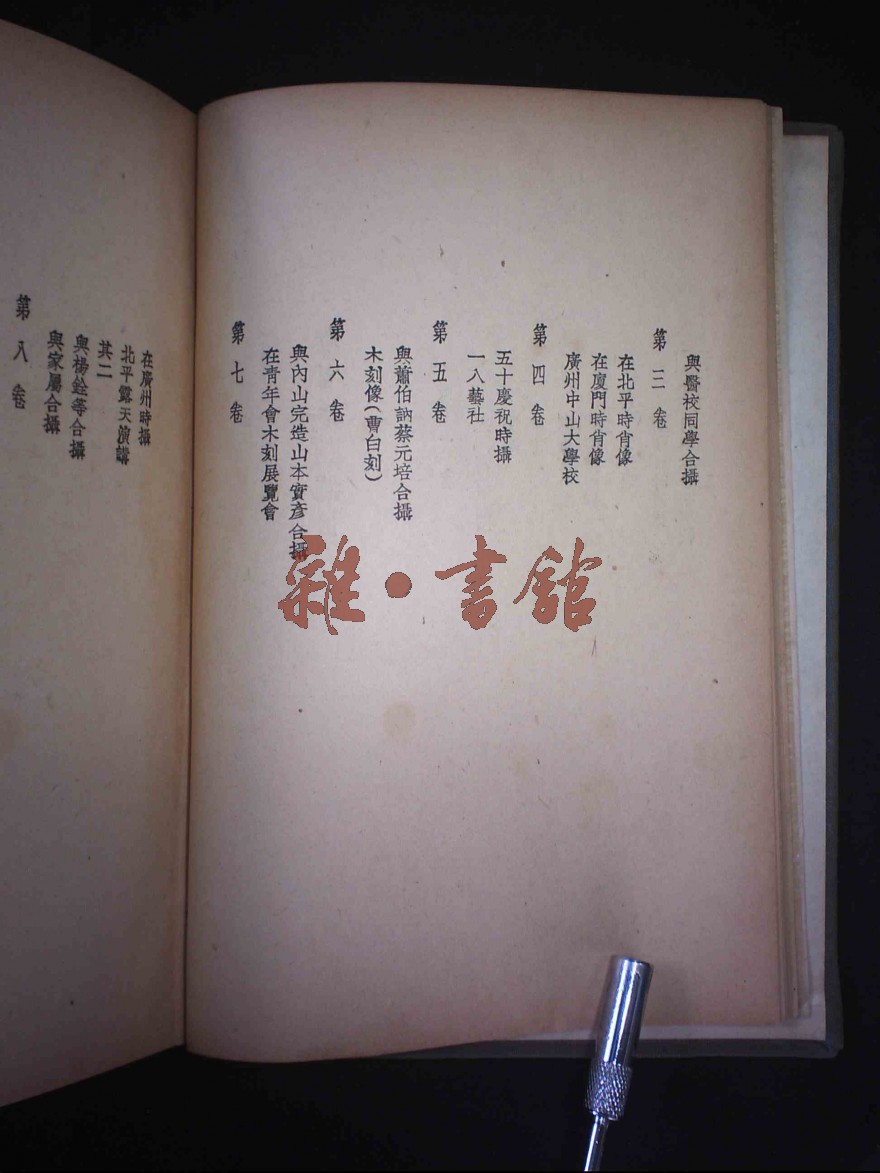 與醫校同學合攝
第三卷
在北平時肖像
在廈門時肖像
廣州中山大學校
第四卷
五十慶祝時攝
一八藝社
第五卷
與蕭伯訥蔡元培合攝
木刻像(曹白刻)
第六卷
與內山完造山本實彥合攝
在青年會木刻展覽會
第七卷
在廣州時攝
北平露天演講
其二
與楊銓等合攝
與家屬合攝
第八卷
雜·書館